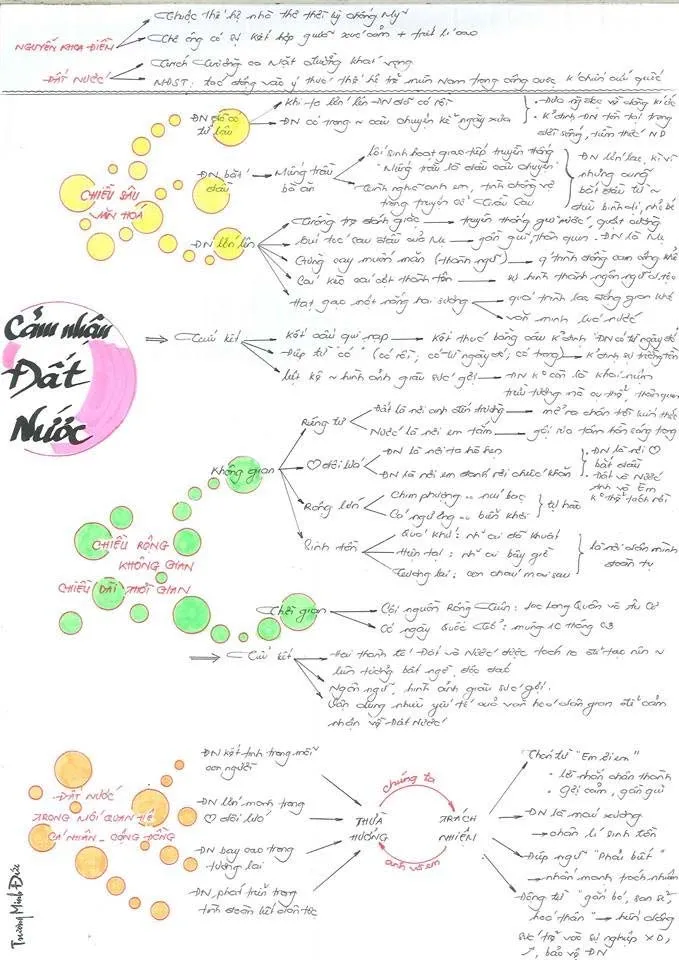 NGUYỄN KHOA ĐIỀM
Thuộc thế hệ nhà thơ thời kỳ chống Mỹ
Thơ ông có sự kết hợp giữa xúc cảm +
ĐẤT NƯỚC
Trích trường ca Mặt đường khát vọng
tác động vào ý thức thế hệ trẻ miền Nam trong công cuộc k'chiến cứu quốc
CHIỀU SÂU
VĂN HOÁ
ĐN đã có
từ lâu
Khi ta lớn lên ĐN đã có rồi
ĐN có trong ~ câu chuyện kể ngày xưa
ĐN bắt
đầu
Miếng trầu
bà ăn
Lối sinh hoạt giao tiếp truyền thống
"Miếng trầu là đầu câu chuyện"
Tình nghĩa anh em, tình chồng vợ
trong truyện cổ Trầu Cau
ĐN lớn lên
Trồng tre đánh giặc → truyền thống giữ nước, quật cường
Búi tóc sau đầu của Mẹ → gần gũi, thân quen. ĐN là Mẹ
Gừng cay muối mặn (thành ngữ)
Cái kèo cái cột thành tên → sự hình thành ngôn ngữ d.tộc
Hạt gạo một nắng hai sương
quá trình lao động gian khổ
văn minh lúa nước
Cảm nhận
Đất
Nước
⇒ Tiểu kết
Kết cấu qui nạp → Kết thúc bằng câu k'định "ĐN có từ ngày đó"
Điệp từ "có" (có rồi; có từ ngày đó; có trong) → k'định sự trường tồn
Liệt kê ~ hình ảnh giàu sức gợi → ĐN k° còn là khái niệm
trừu tượng mà cụ thể, thân quen
CHIỀU RỘNG
KHÔNG GIAN
CHIỀU DÀI THỜI GIAN
Không gian
Riêng tư
Đất là nơi anh đến trường → mở ra chân trời kiến thức
Nước là nơi em tắm → gợi ra tâm hồn sáng trong
♡ đôi lứa
ĐN là nơi ta hò hẹn
ĐN là nơi em đánh rơi chiếc khăn
. ĐN là nơi ♡
bắt đầu
. Đất và Nước
Anh và Em
k° thể tách rời
Rộng lớn
Chim phượng .. núi bạc
Cá ngư ông .. biển khơi
tự hào
Sinh tồn
Quá khứ: những ai đã khuất
Hiện tại: những ai bây giờ
Tương lai: con cháu mai sau
là nơi dân mình
đoàn tụ
Thời gian
Cội nguồn Rồng Tiên: Lạc Long Quân và Âu Cơ
Có ngày Quốc Tổ: mùng 10 tháng 03
⇒ Tiểu kết
Hai thành tố Đất và Nước được tách ra để tạo nên ~
liên tưởng bất ngờ, độc đáo
Ngôn ngữ, hình ảnh giàu sức gợi.
Vận dụng nhiều yếu tố của văn hoá dân gian để cảm
nhận về Đất Nước
ĐẤT NƯỚC
TRONG MỐI QUAN HỆ
CÁ NHÂN - CỘNG ĐỒNG
ĐN kết tinh trong mỗi
con người
ĐN lớn mạnh trong
♡ đôi lứa
ĐN bay cao trong
tương lai
ĐN phát triển trong
tinh đoàn kết dân tộc
THỪA
HƯỞNG
chúng ta
anh và em
TRÁCH
NHIỆM
Thán từ "Em ơi em"
• lời nhắn chân thành
• gợi cảm, gần gũi
ĐN là máu xương
→ chân lí sinh tồn
Điệp ngữ "Phải biết"
→ nhấn mạnh trách nhiệm
Động từ "gắn bó, san sẻ,
hoá thân" →
sức trẻ vào sự nghiệp XD,
bảo vệ ĐN
Trương Minh Đức